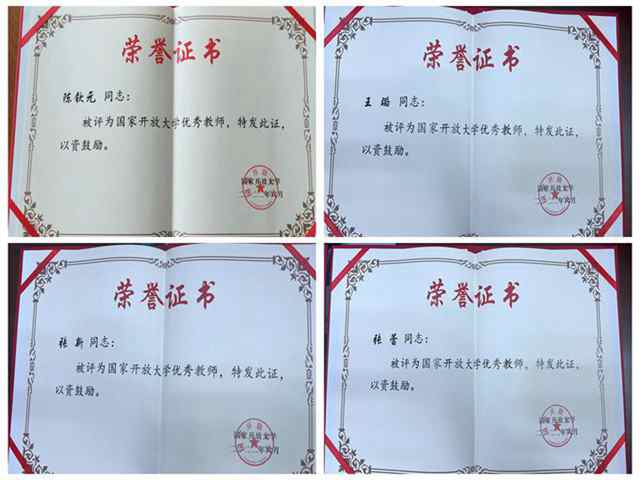 荣誉证书
陈钦元 同志：
被评为国家开放大学优秀教师，特发此证，
以资鼓励。
国家开放大学
荣誉证书
王 璐 同志：
被评为国家开放大学优秀教师，特发此证，
以资鼓励。
国家开放大学
荣誉证书
张 新 同志：
被评为国家开放大学优秀教师，特发此证，
以资鼓励。
国家开放大学
荣誉证书
张 蕾 同志：
被评为国家开放大学优秀教师，特发此证，
以资鼓励。
国家开放大学